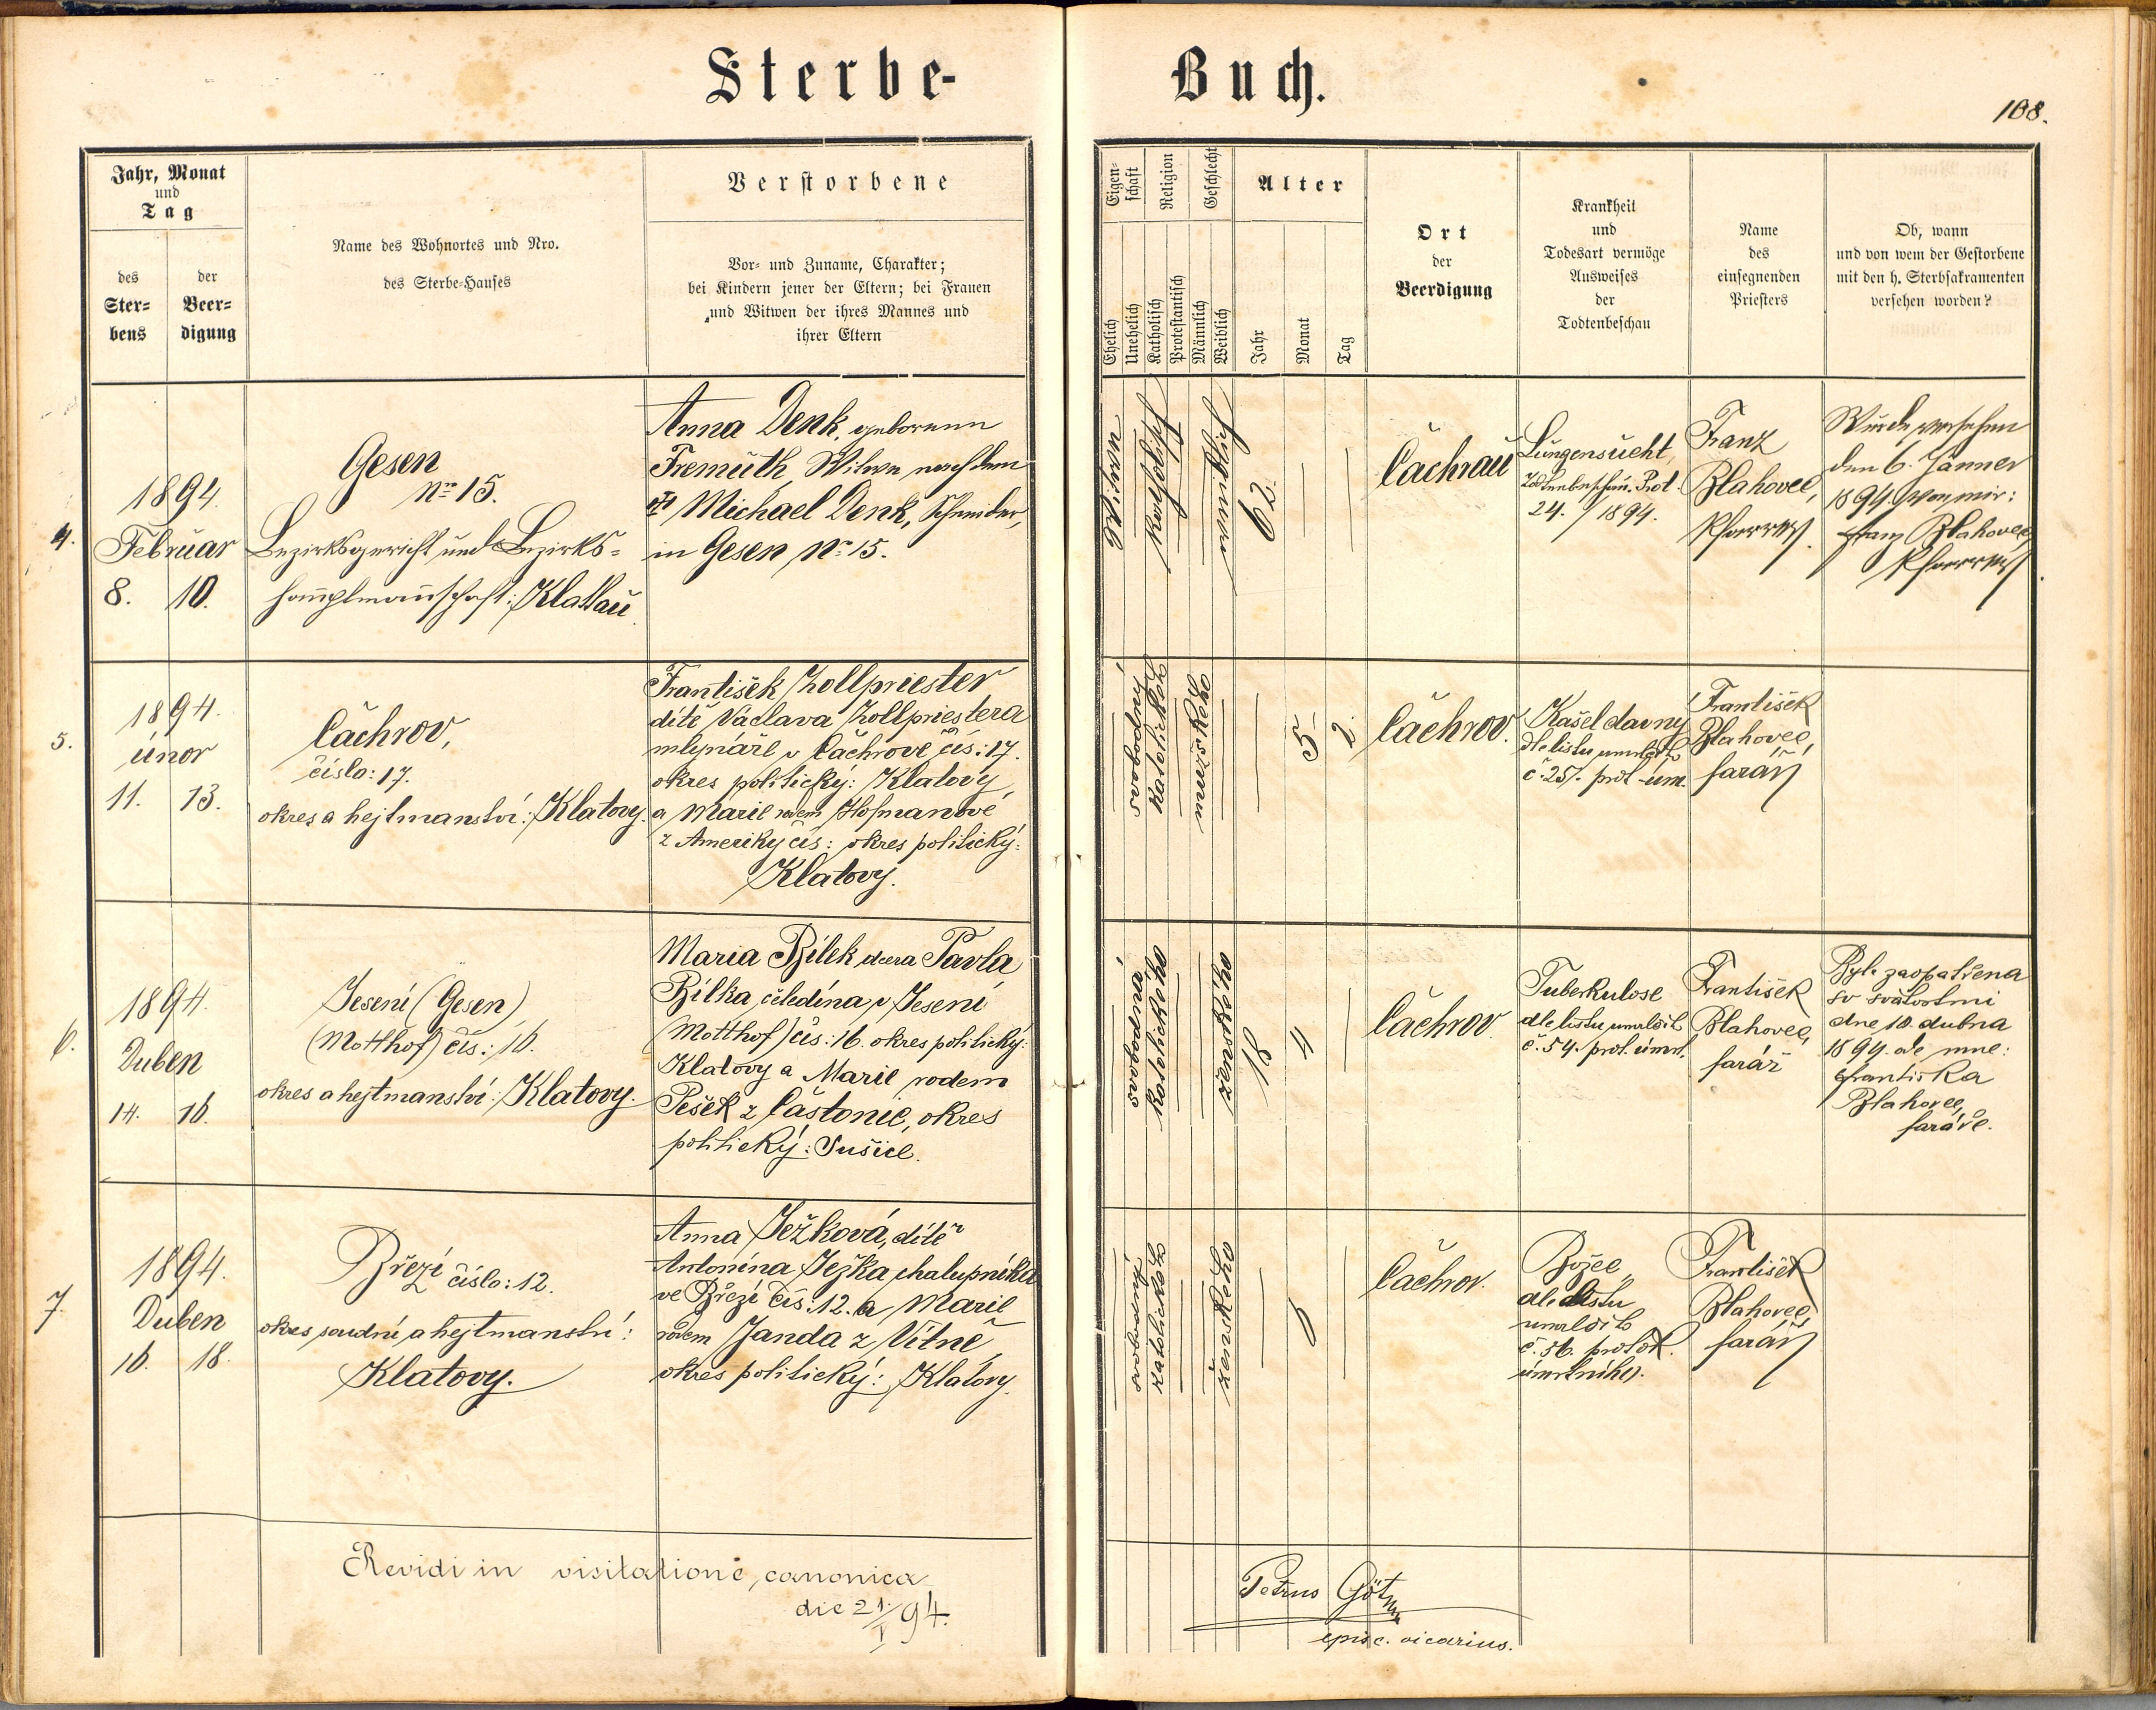 Sterbe-Buch.
108.
Jahr, Monat
und
Tag
des
Ster-
bens
der
Beer-
digung
Name des Wohnortes und Nro.
des Sterbe-Hauses
Verstorbene
Vor- und Zuname, Charakter;
bei Kindern jener der Eltern; bei Frauen
und Witwen der ihres Mannes und
ihrer Eltern
Eigen-
schaft
Religion
Geschlecht
Ehelich
Unehelich
Katholisch
Protestantisch
Männlich
Weiblich
Alter
Jahr
Monat
Tag
Ort
der
Beerdigung
Krankheit
und
Todesart vermöge
Ausweises
der
Todtenbeschau
Name
des
einsegnenden
Priesters
Ob, wann
und von wem der Gestorbene
mit den h. Sterbsakramenten
versehen worden?
4.
1894
Februar
8. 10.
Gesen
Nro 15.
Bezirksgericht und Bezirks-
hauptmannschaft: Klattau.
Anna Denk, geborene
Fremuth, Witwe nach dem
Michael Denk, Schneider,
in Gesen No 15.
Witwe
katholisch
weiblich
62.
Čachrau
Lungensucht,
Todtenbeschau. Prot.
24./1894.
Franz
Blahovec,
Pfarrer.
Wurde versehen
den 6. Jänner
1894 von mir:
Franz Blahovec
Pfarrer
5.
1894.
únor
11. 13.
Čachrov,
číslo: 17.
okres a hejtmanství: Klatovy.
František Zollpriester
dítě Václava Zollpriestera
mlynáře v Čachrově čís: 17.
okres politický: Klatovy,
a Marie rodem Hofmanové
z Ameriky čís: okres politický:
Klatovy.
svobodný
katolického
mužského
5 2.
Čachrov.
Kašel davný
dle listu umrlčího
č. 25. prot. úm.
František
Blahovec,
farář
6.
1894.
Duben
14. 16.
Jesení (Gesen)
(Motthof) čís: 16.
okres a hejtmanství: Klatovy.
Maria Bílek dcera Pavla
Bílka, čeledína v Jesení
(Motthof) čís: 16. okres politický:
Klatovy a Marie rodem
Pešek z Částonic, okres
politický: Sušice.
svobodná
katolického
ženského
18 4
Čachrov.
Tuberkulose
dle listu umrlčího
č. 54. prot. úmrt.
František
Blahovec,
farář
Byla zaopatřena
sv svátostmi
dne 10. dubna
1894 ode mne:
Františka
Blahovec,
faráře.
7.
1894.
Duben
16. 18.
Březí číslo: 12.
okres soudní a hejtmanství:
Klatovy.
Anna Ježková, dítě
Antonína Ježka chalupníka
ve Březí čís: 12. a Marie
rodem Janda z Vítně
okres politický: Klatovy.
svobodný
katolického
ženského
Čachrov.
Božec
dle listu
umrlčího
č. 56. protok.
úmrtního.
František
Blahovec,
farář
Revidi in visitatione canonica
die 21./I 94.
Petrus
episc. vicarius.